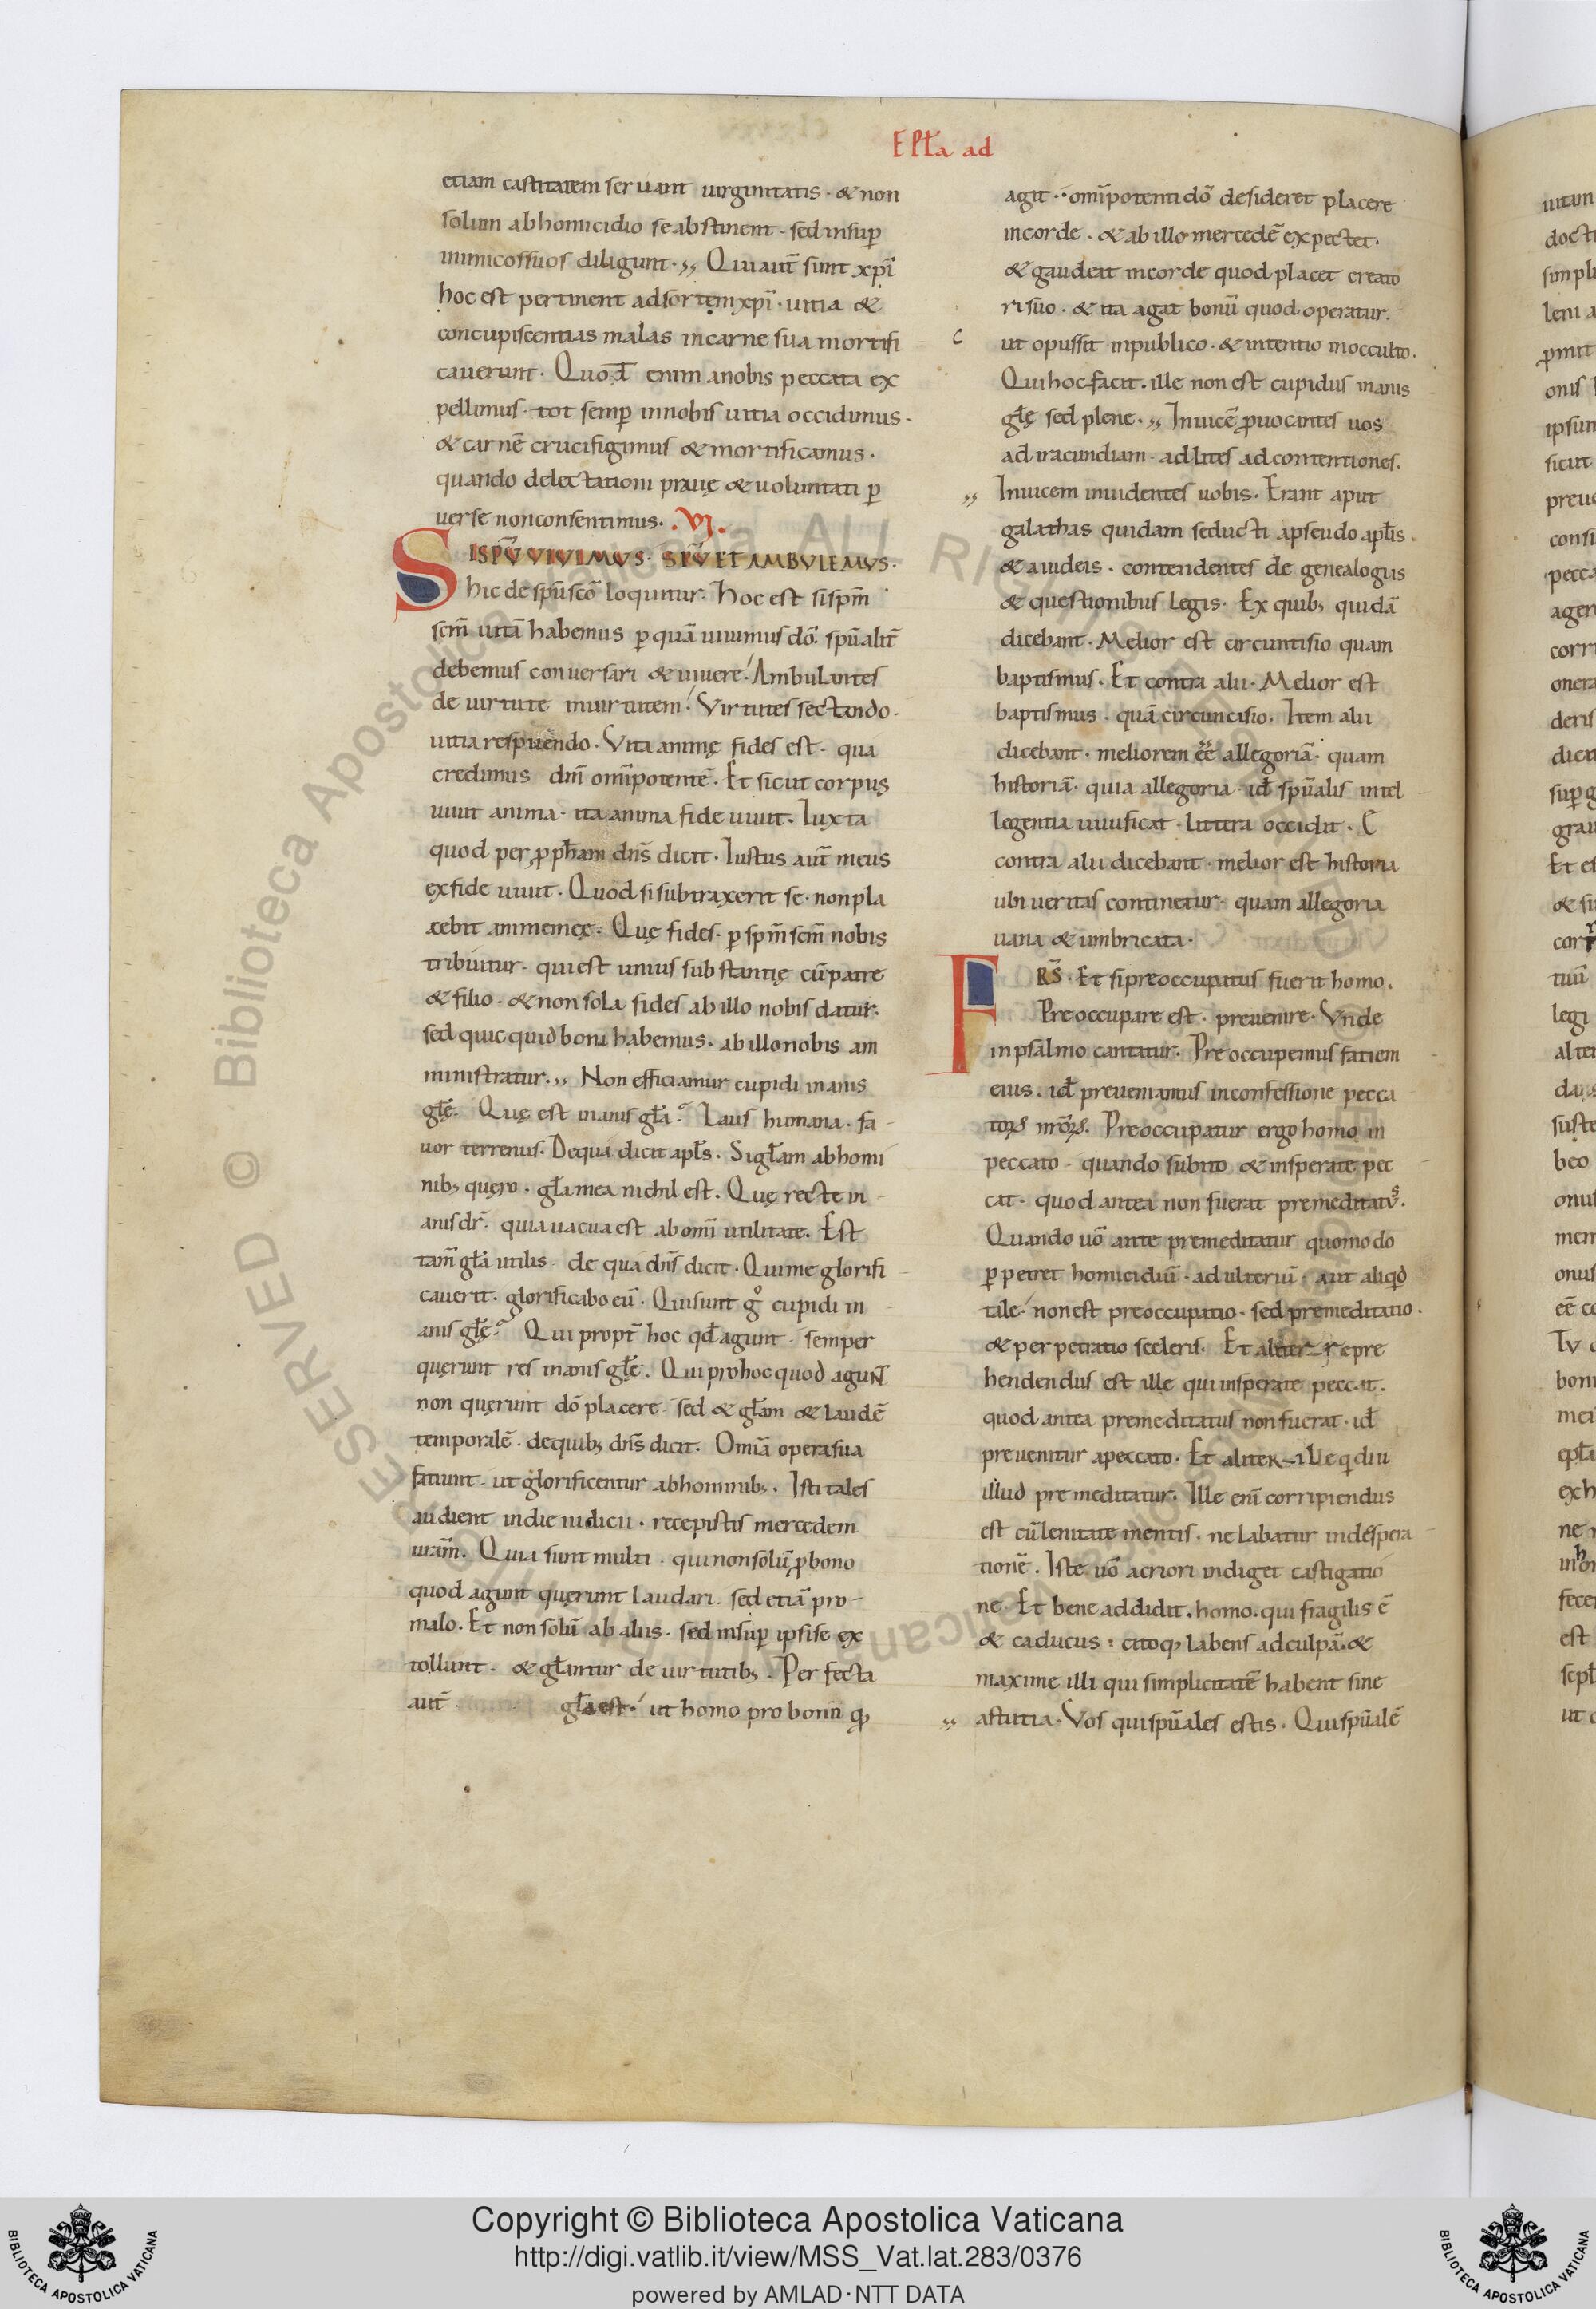 EPƚa ad
etiam castitatem seruant uirginitatis · & non
solum abhomicidio seabstinent · sed insuꝑ
inimicossuos diligunt · ,, Quiaut̄ sunt xp̄i
hoc est pertinent adsortęmxp̄i · uitia &
concupiscentias malas incarne sua mortifi
cauerunt · Quot̄ enim anobis peccata ex
pellimus · tot semꝑ innobis uitia occidimus ·
& carnē crucifigimus & mortificamus ·
quando delectationi prauę & uoluntati ꝑ
uerse nonconsentimus · .VI.
SISPŪ VIVIMVS · SPŪ ET AMBVLEMVS ·
hic de sp̄u sc̄o loquitur · hoc est sispm̄
scm̄ uitā habemus ꝑ quā uiuimus dō · spūalit̄
debemus conuersari & uiuere · Ambulantes
de uirtute inuirtutem · Virtutes sectando ·
uitia respuendo · Vita animę fides est · qua
credimus dn̄m omīpotentē · Et sicut corpus
uiuit anima · ita anima fide uiuit · Iuxta
quod per ꝓph̄am dn̄s dicit · Iustus aut̄ meus
exfide uiuit · Quod sisubtraxerit se · nonpla
cebit animemeę · Quę fides · ꝑ spm̄ scm̄ nobis
tribuitur · quiest unius substantię cū patre
& filio · & non sola fides ab illo nobis datur ·
sed quicquidboni habemus · ab illonobis am
ministratur · ,, Non efficiamur cupidi inanis
gƚę · Quę est inanis gƚa · Laus humana · fa
uor terrenus · Dequa dicit apƚs · Sigƚam abhomi
nib; quęro · gƚa mea nichil est · Quę recte in
anis dr̄ · quia uacua est ab omī utilitate · Est
tam̄ gƚa utilis · de qua dn̄s dicit · Quime glorifi
cauerit · glorificabo eū · Quisunt gͦ cupidi in
anis gƚę · Qui propt̄ hoc qđ agunt · semper
quęrunt res inanis gƚę · Qui prohoc quod agunt
non quęrunt dō placere · sed & gƚam & laudē
temporalē · dequib; dn̄s dicit · Omīa opera sua
fatiunt · ut glorificentur abhominib; · Isti tales
audient indie iudicii · recepistis mercedem
uram̄ · Quia sunt multi · qui nonsolū ꝓ bono
quod agunt quęrunt laudari · sed etiā pro
malo · Et non solū ab aliis · sed insuꝑ ipsise ex
tollunt · & gƚantur de uirtutib; · Perfecta
aut̄ · gƚa est · ut homo pro bonū q
agit · omīpotenti dō desideret placere
incorde · & ab illo mercedē expectet ·
& gaudeat incorde quod placet creato
ri suo · & ita agat bonū quod operatur ·
ut opussit inpublico · & intentio inocculto ·
Quihoc facit · ille non est cupidus inanis
gƚę sed plene · ,, Inuicē ꝓuocantes uos
ad iracundiam · adlites adcontentiones ·
,, Inuicem inuidentes uobis · Erant aput
galathas quidam seducti apseudo apƚis ·
& aiudeis · contendentes de genealogiis
& questionibus legis · Ex quib; quidā
dicebant · Melior est circuntisio quam
baptismus · Et contra alii · Melior est
baptismus · quā circuncisio · Item alii
dicebant · meliorem ēē allegoriā · quam
historiā · quia allegoria · id̄ spūalis intel
legentia uiuificat · littera occidit · E
contra alii dicebant · melior est historia
ubi ueritas continetur · quam allegoria
uana & umbricata ·
FRS̄ · Et sipreoccupatus fuerit homo ·
Preoccupare est · preuenire · Vnde
inpsalmo cantatur · Preoccupemus fatiem
eius · id̄ preueniamus inconfessione pecca
toꝝ nr̄oꝝ · Preoccupatur ergo homo in
peccato · quando subito & insperate pec
cat · quod antea non fuerat premeditatus ·
Quando uō ante premeditatur quomodo
ꝑpetret homicidiū · adulteriū · aut aliqd̄
tale · nonest preoccupatio · sed premeditatio ·
& perpetratio sceleris · Et aliter repre
hendendus est ille qui insperate peccat ·
quod antea premeditatus non fuerat · id̄
preuenitur apeccato · Et aliter ille q̄ diu
illud premeditatur · Ille enī corripiendus
est cū lenitate mentis · ne labatur indespera
tionē · Iste uō acriori indiget castigatio
ne · Et bene addidit · homo · qui fragilis ē
& caducus : citoq; labens adculpā · &
maxime illi qui simplicitatē habent sine
,, astutia · Vos qui spūales estis · Qui spūalē
Copyright © Biblioteca Apostolica Vaticana
http://digi.vatlib.it/view/MSS_Vat.lat.283/0376
powered by AMLAD·NTT DATA
BIBLIOTECA APOSTOLICA VATICANA
BIBLIOTECA APOSTOLICA VATICANA